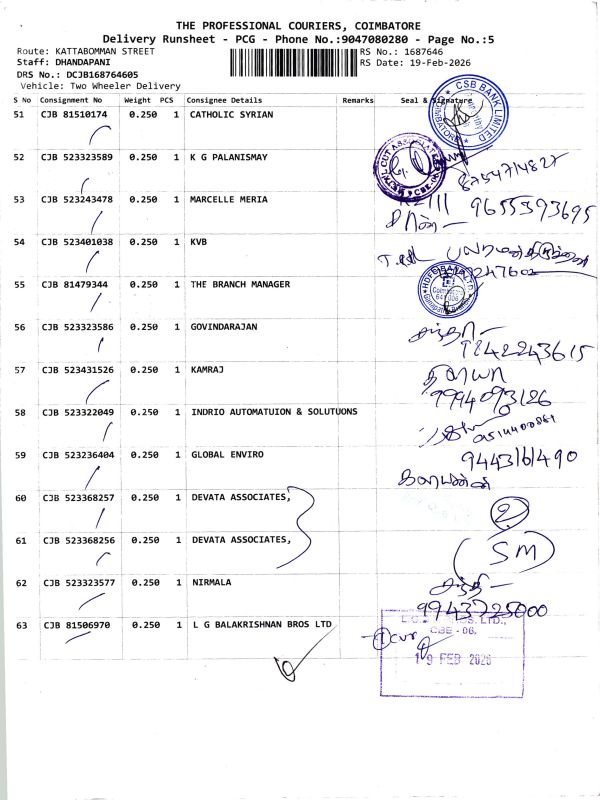 THE PROFESSIONAL COURIERS, COIMBATORE
Delivery Runsheet - PCG - Phone No.:9047080280 - Page No.:5
Route: KATTABOMMAN STREET RS No.: 1687646
Staff: DHANDAPANI RS Date: 19-Feb-2026
DRS No.: DCJB168764605
Vehicle: Two Wheeler Delivery
S No Consignment No Weight PCS Consignee Details Remarks Seal & Signature
51 CJB 81510174 0.250 1 CATHOLIC SYRIAN
CSB BANK LIMITED
52 CJB 523323589 0.250 1 K G PALANISMAY
8754714827
53 CJB 523243478 0.250 1 MARCELLE MERIA
9655393695
54 CJB 523401038 0.250 1 KVB
55 CJB 81479344 0.250 1 THE BRANCH MANAGER
HDFC BANK LTD
56 CJB 523323586 0.250 1 GOVINDARAJAN
9842243615
57 CJB 523431526 0.250 1 KAMRAJ
9994093126
58 CJB 523322049 0.250 1 INDRIO AUTOMATUION & SOLUTUONS
59 CJB 523236404 0.250 1 GLOBAL ENVIRO
9443161490
60 CJB 523368257 0.250 1 DEVATA ASSOCIATES,
2
61 CJB 523368256 0.250 1 DEVATA ASSOCIATES,
(SM)
62 CJB 523323577 0.250 1 NIRMALA
9943725000
63 CJB 81506970 0.250 1 L G BALAKRISHNAN BROS LTD
CBE - 06.
19 FEB 2026